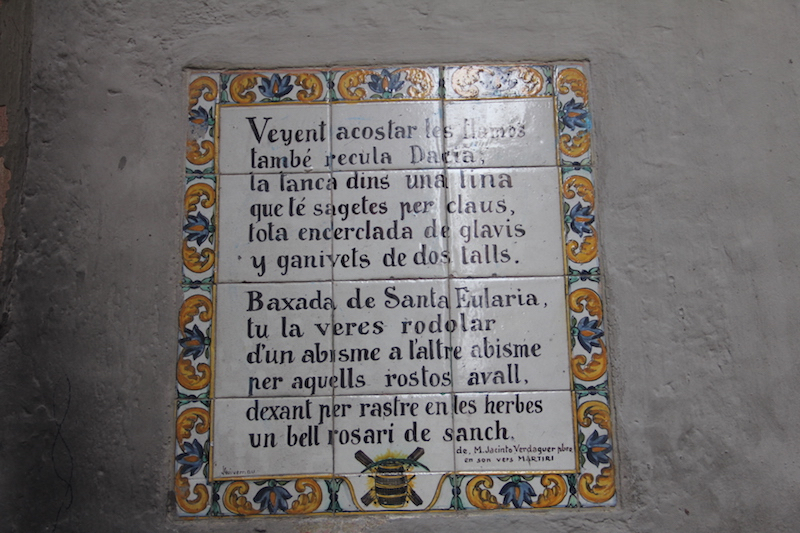 Veyent acostar les flamos
també recula Dacia,
la tanca dins una tina
que té sagetes per claus,
tota encerclada de glavis
y ganivets de dos talls.
Baxada de Santa Eularia,
tu la veres rodolar
d'un abisme a l'altre abisme
per aquells rostos avall,
dexant per rastre en les herbes
un bell rosari de sanch.
de, M. Jacinto Verdaguer pbre
en son vers MARTIRI